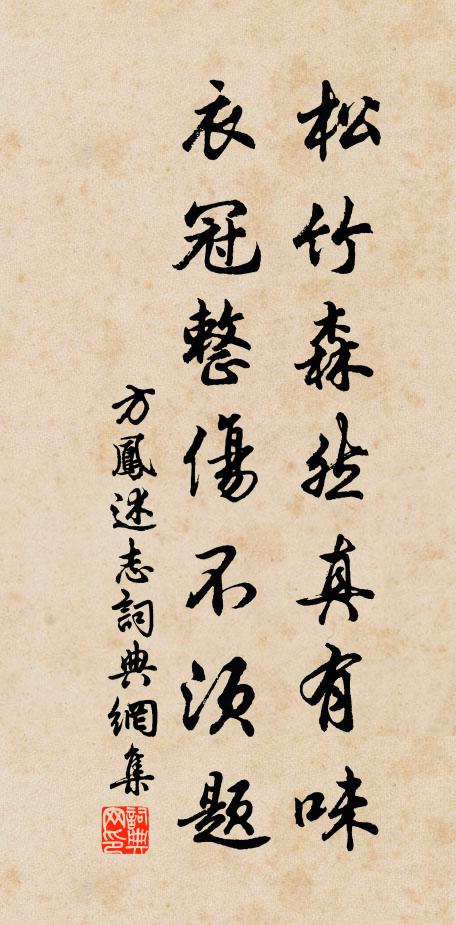 松竹森然真有味
衣冠整傷不須題
方鳳述志詞典網集
詞典網印